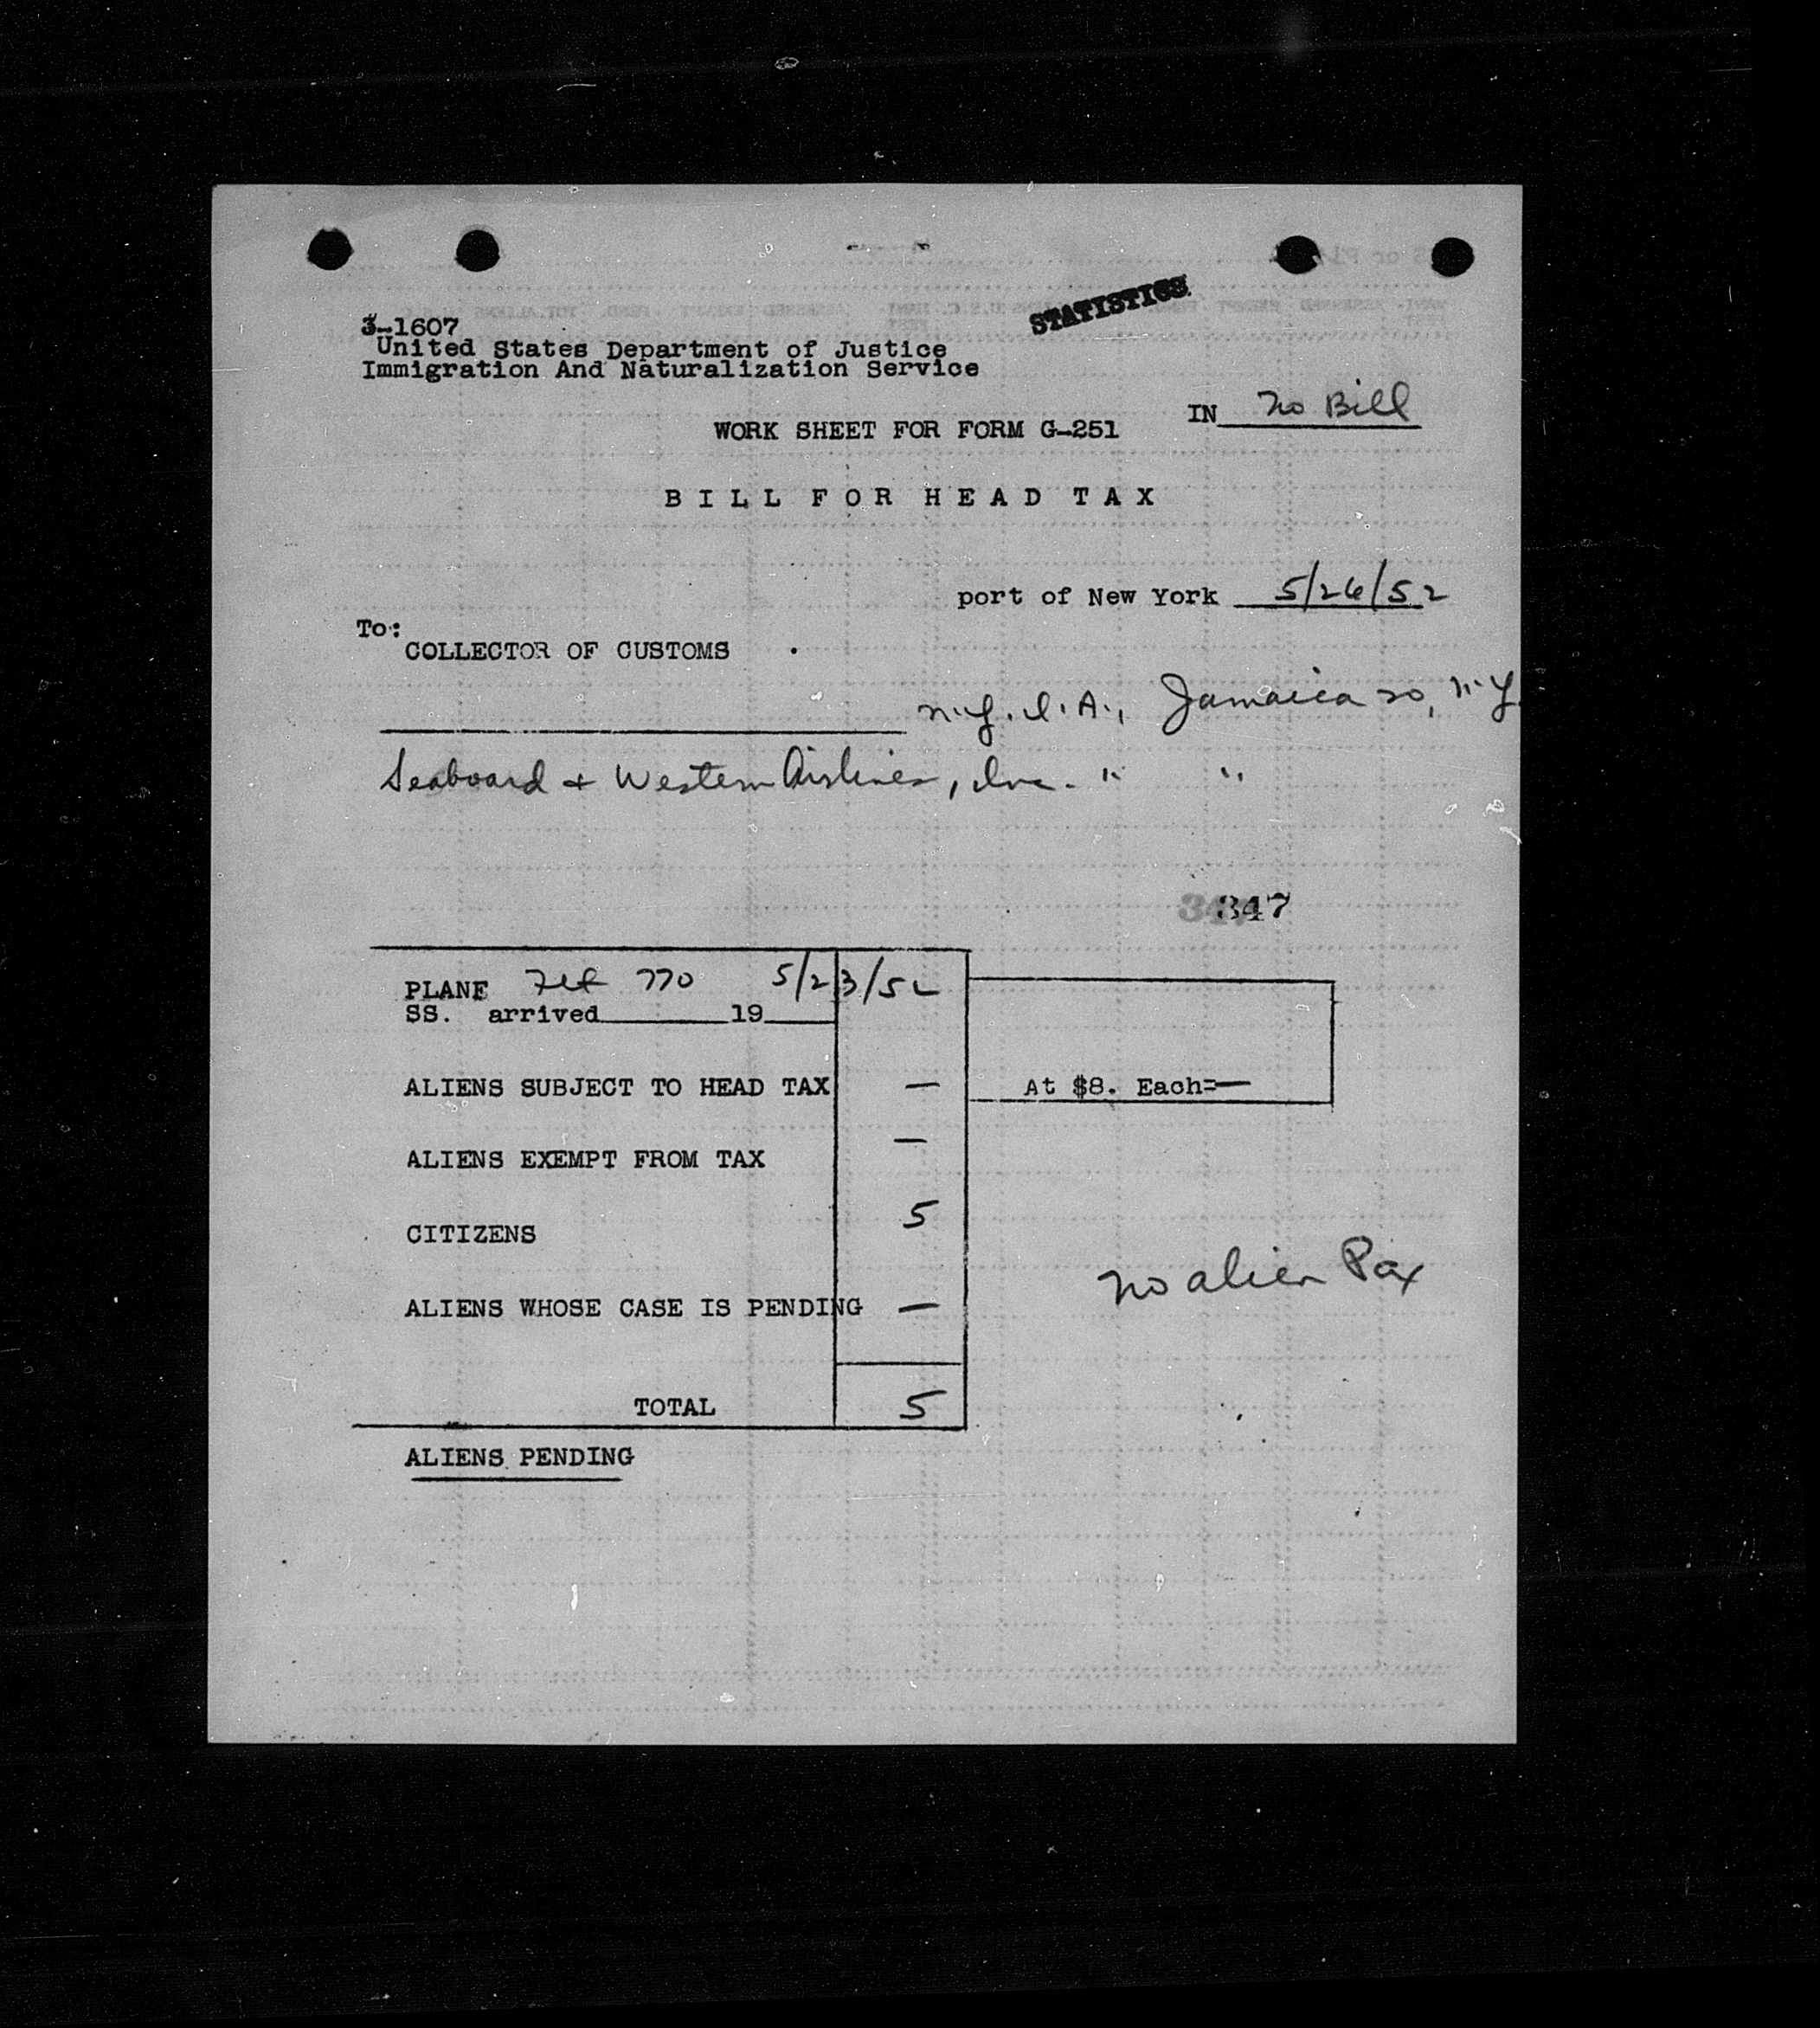 STATISTICS
3-1607
United States Department of Justice
Immigration And Naturalization Service
IN No Bill
WORK SHEET FOR FORM G-251
BILL FOR HEAD TAX
port of New York 5/26/52
To:
COLLECTOR OF CUSTOMS
N.Y.I.A., Jamaica 20, N.Y.
Seaboard & Western Airlines, Inc. " "
347
PLANE Flt 770 5/23/52
SS. arrived 19
ALIENS SUBJECT TO HEAD TAX — At $8. Each=—
ALIENS EXEMPT FROM TAX —
CITIZENS 5
no alien Pax
ALIENS WHOSE CASE IS PENDING —
TOTAL 5
ALIENS PENDING